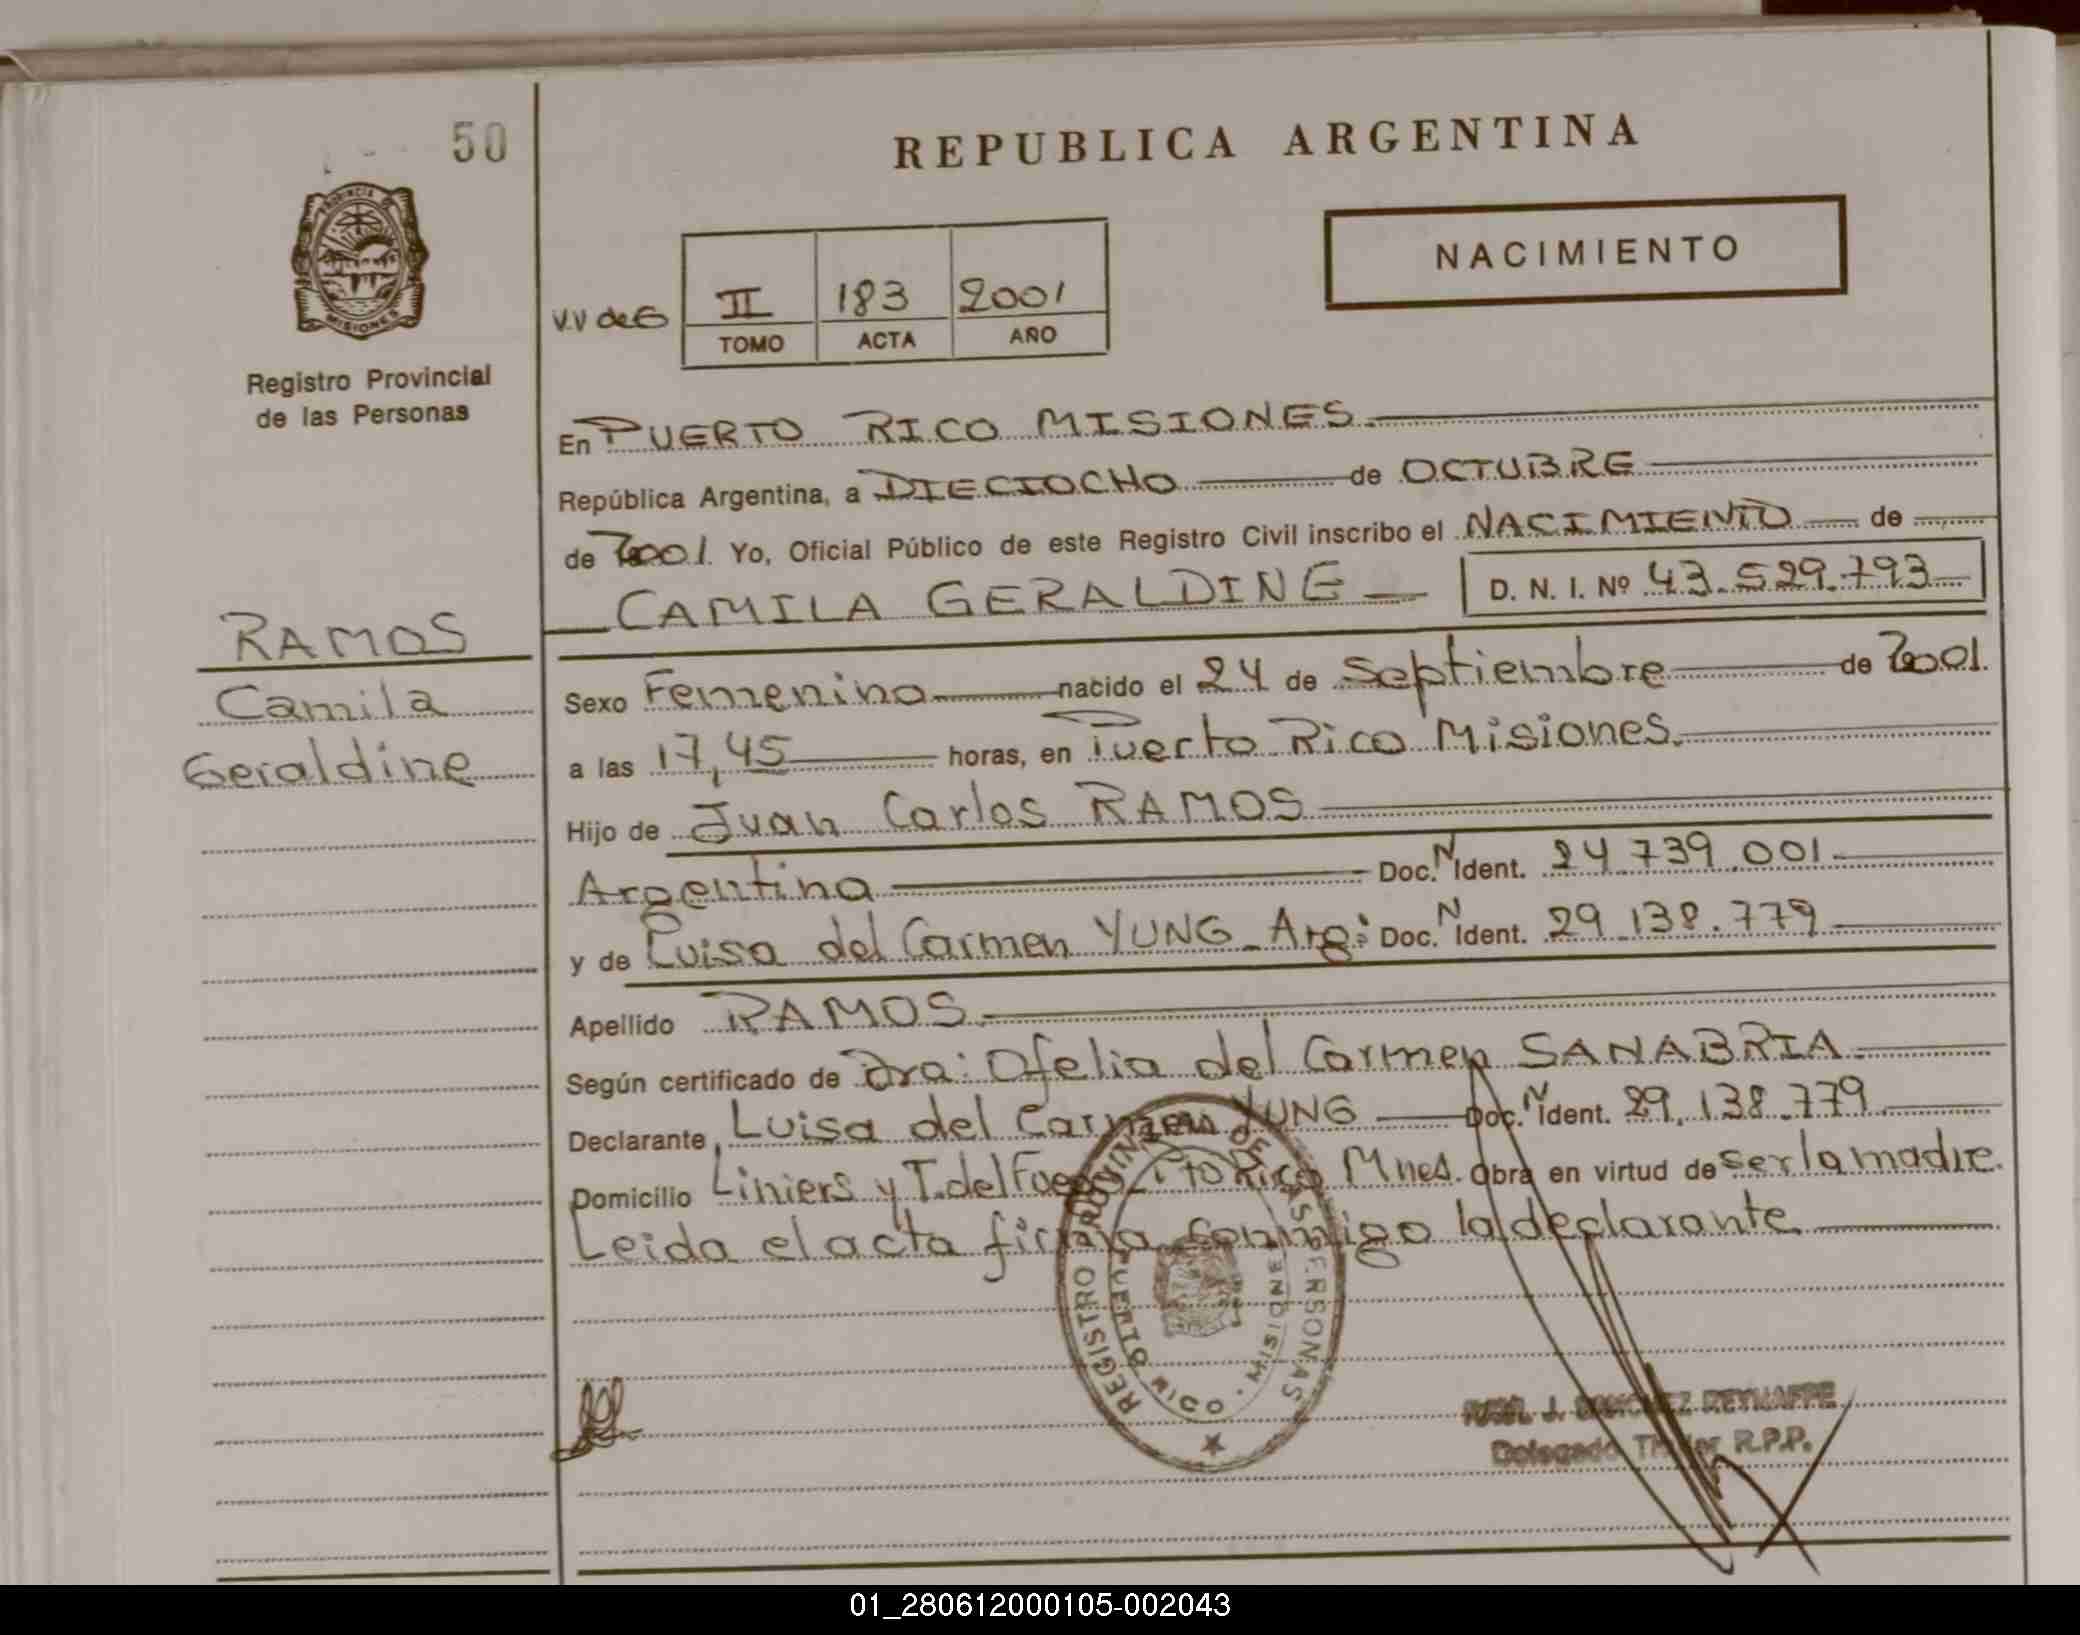 50
PROVINCIA DE
MISIONES
Registro Provincial
de las Personas
REPUBLICA ARGENTINA
NACIMIENTO
V.V de G
II 183 2001
TOMO ACTA AÑO
En PUERTO RICO MISIONES.
República Argentina, a DIECIOCHO de OCTUBRE
de 2001. Yo, Oficial Público de este Registro Civil inscribo el NACIMIENTO de
CAMILA GERALDINE D. N. I. Nº 43.529.793
RAMOS
Camila
Geraldine
Sexo Femenino nacido el 24 de Septiembre de 2001.
a las 17,45 horas, en Puerto Rico Misiones.
Hijo de Juan Carlos RAMOS
Argentina Doc. N Ident. 24 739.001
y de Luisa del Carmen YUNG Arg: Doc. N Ident. 29 138.779
Apellido RAMOS.
Según certificado de Dra: Ofelia del Carmen SANABRIA
Declarante, Luisa del Carmen YUNG Doc. N Ident. 29.138.779
Domicilio Liniers y T. del Fuego Pto Rico Mnes. Obra en virtud de ser la madre.
Leida el acta firma conmigo la declarante
REGISTRO PROVINCIAL DE LAS PERSONAS
PUERTO RICO - MISIONES
J. SANCHEZ
Delegado Titular R.P.P.
01_280612000105-002043